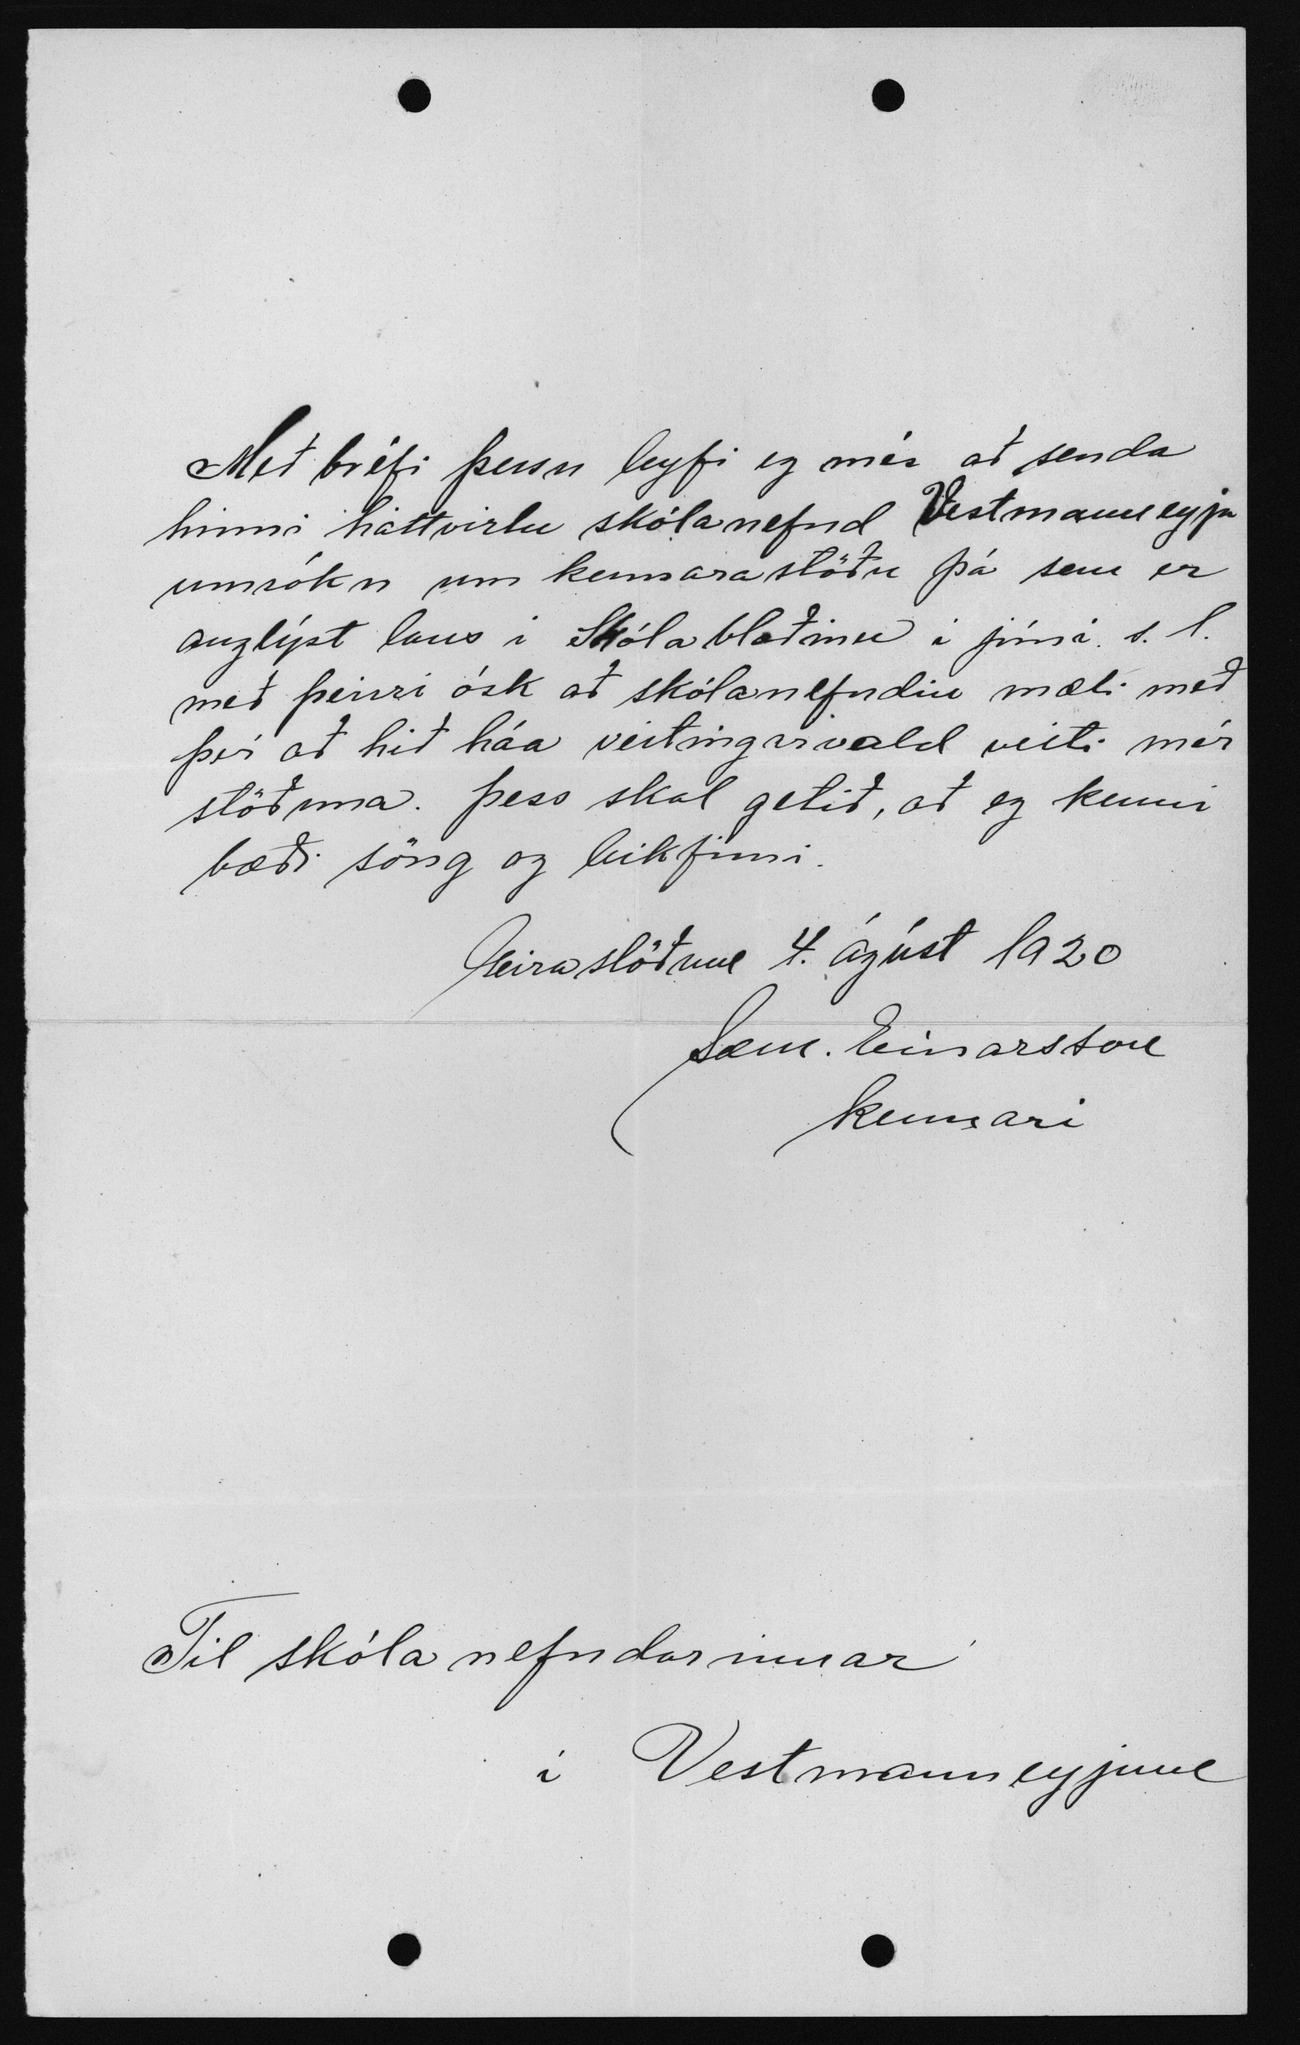 Með bréfi þessu leyfi eg mér að senda
hinni háttvirtu skólanefnd Vestmanneyja
umsókn um kennarastöðu þá sem er
auglýst laus í Skólablaðinu í júní. s. l.
með þeirri ósk að skólanefndin mæli með
því að hið háa veitingarvald veiti mér
stöðuna. Þess skal getið, að eg kenni
bæði söng og leikfimi.
4. ágúst 1920
Sæm. Einarsson
kennari
Til skólanefndarinnar
í Vestmanneyjum